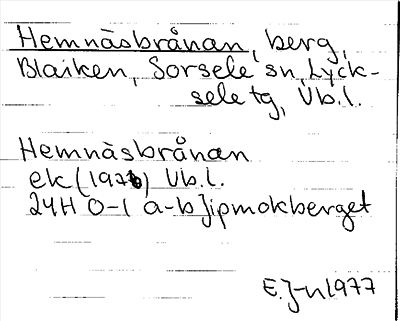 Hemnäsbrånan, berg,
Blaiken, Sorsele sn, Lyck-
sele tg, Vb. l.
Hemnäsbrånan
ek (1976) Vb. l.
24H 0-1 a-b Jipmokberget
E. J-n 1977